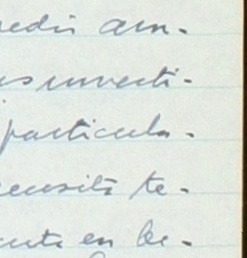 pedir am-
us investi-
particula-
censita te-
ente en be-